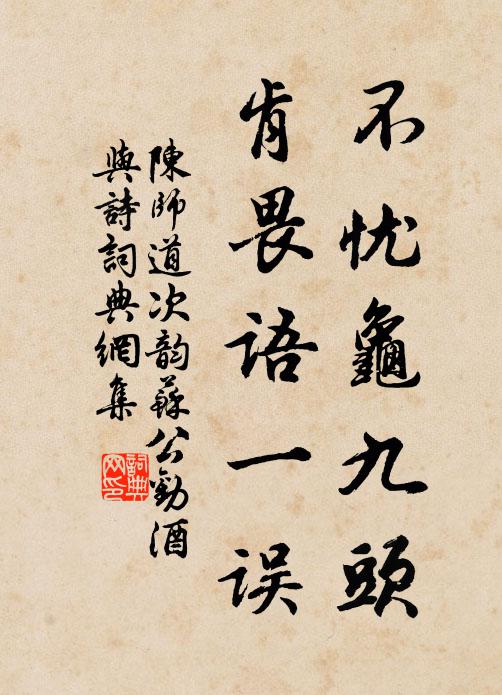 不忧龜九頭
肯畏语一误
陳師道次韵蘇公勸酒
與詩詞典網集
詞典網印